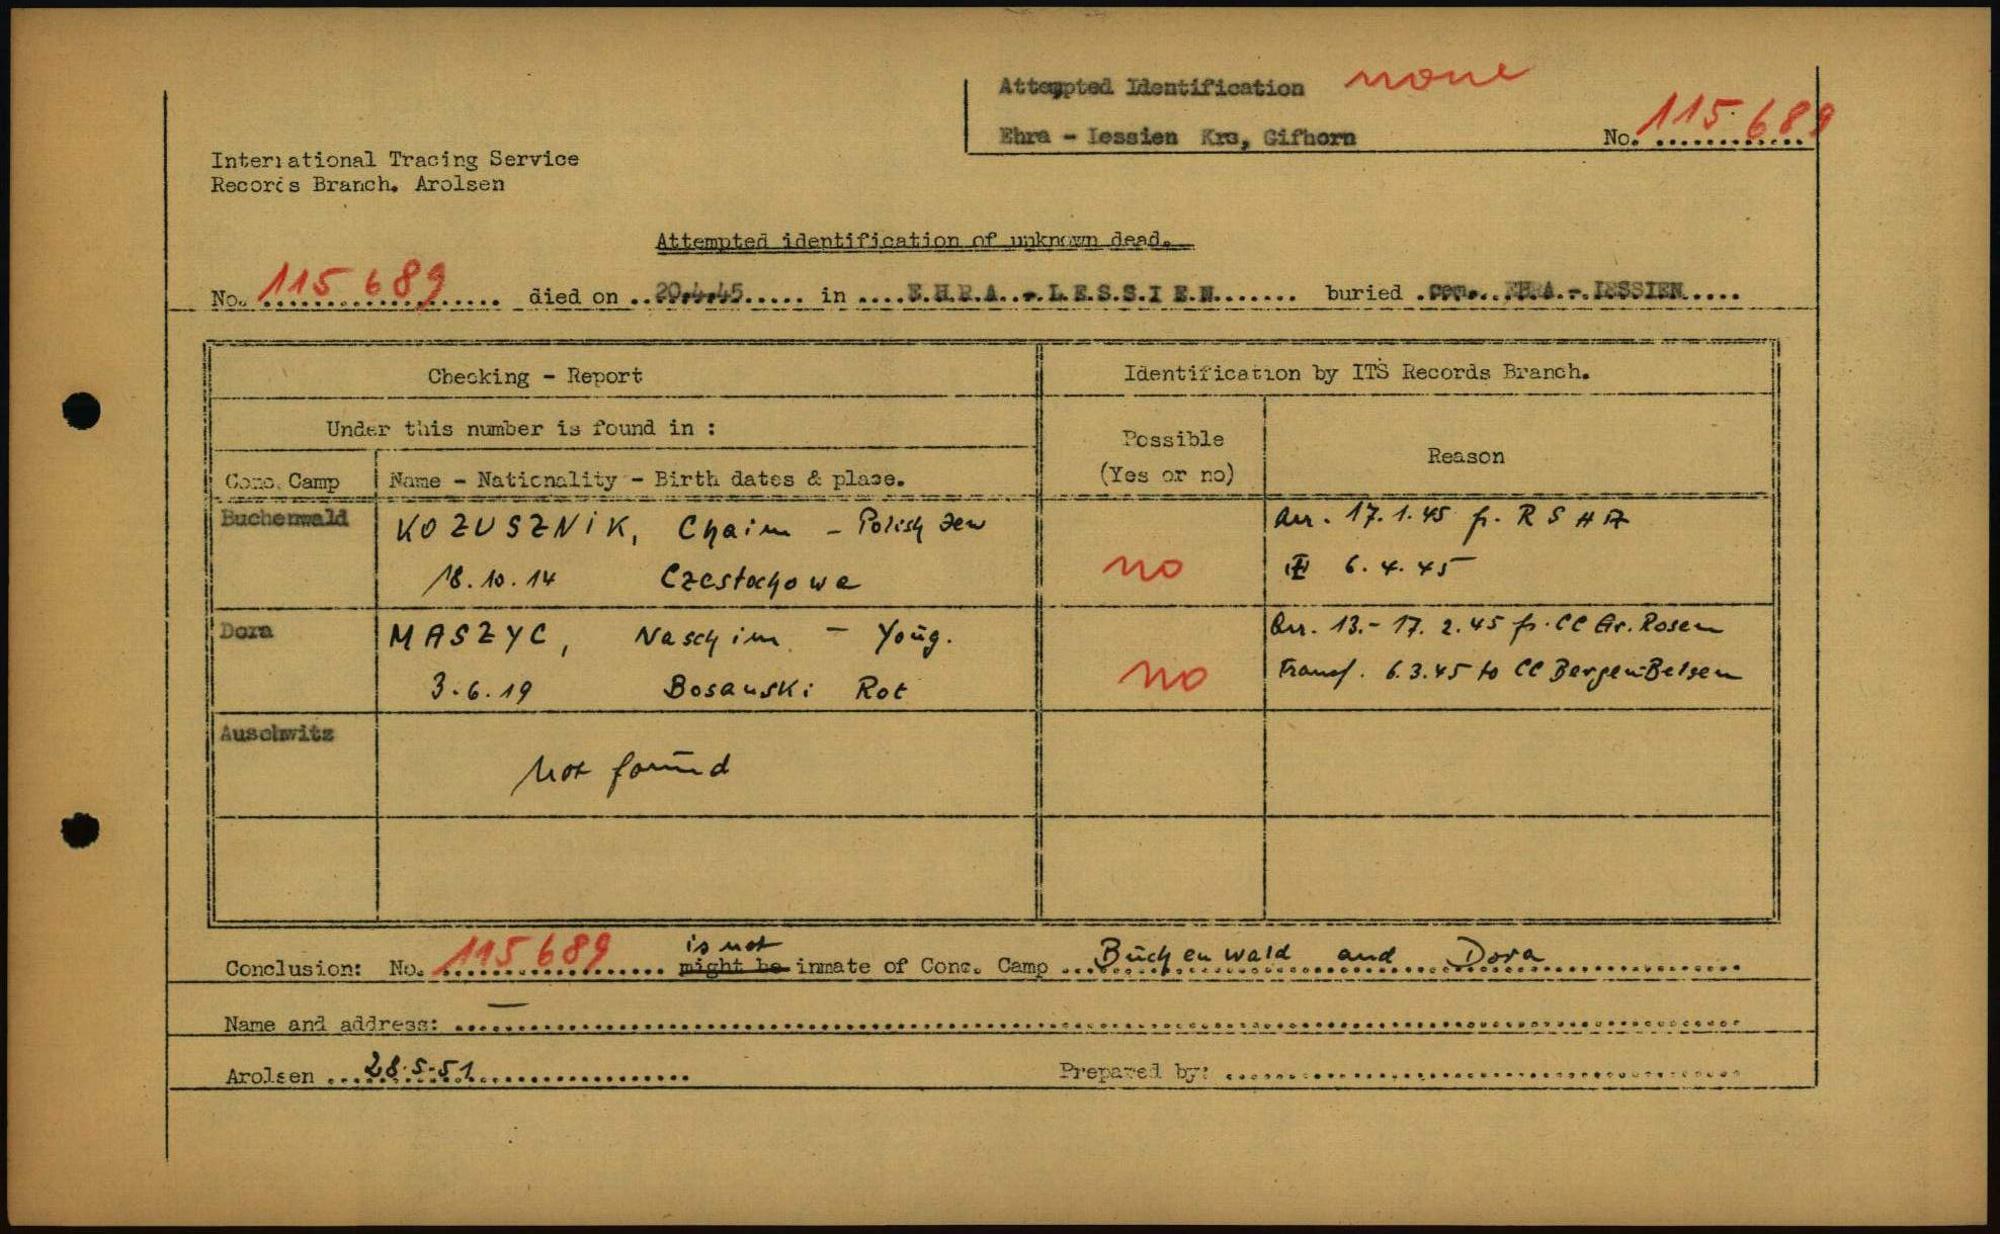 Attempted Identification none
Ehra - Lessien Krs, Gifhorn No. 115689
International Tracing Service
Records Branch. Arolsen
Attempted identification of unknown dead.
No. 115689 died on 20.4.45 in E.H.R.A. - L.E.S.S.I E.N. buried cem. EHRA - LESSIEN
Checking - Report
Identification by ITS Records Branch.
Under this number is found in :
Possible
(Yes or no)
Reason
Conc. Camp Name - Nationality - Birth dates & place.
Buchenwald KOZUSZNIK, Chaim - Polish Jew Arr. 17.1.45 fr. R S H A
18.10.14 Czestochowa no 6.4.45
Dora MASZYC, Naschim - Yoūg. Arr. 13.- 17.2.45 fr. CC Gr. Rosen
3.6.19 Bosanski Rot no Transf. 6.3.45 to CC Bergen-Belsen
Auschwitz
Not foūnd
is not
Conclusion: No. 115689 might be inmate of Conc. Camp Būchenwald and Dora
Name and address: —
Arolsen 28.5.51 Prepared by: